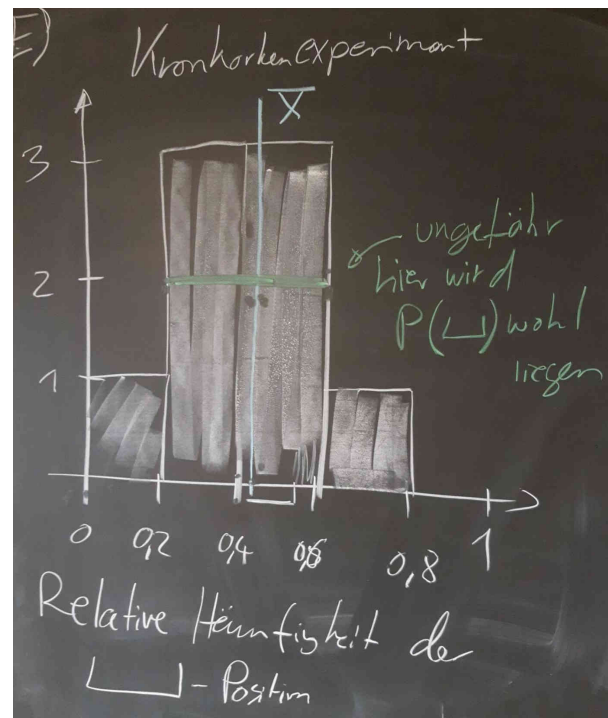 E)
Kronkorkenexperiment
X
3
2
1
ungefähr
hier wird
P(⊔) wohl
liegen
0 0,2 0,4 0,6 0,8 1
Relative Häufigkeit der
⊔-Position